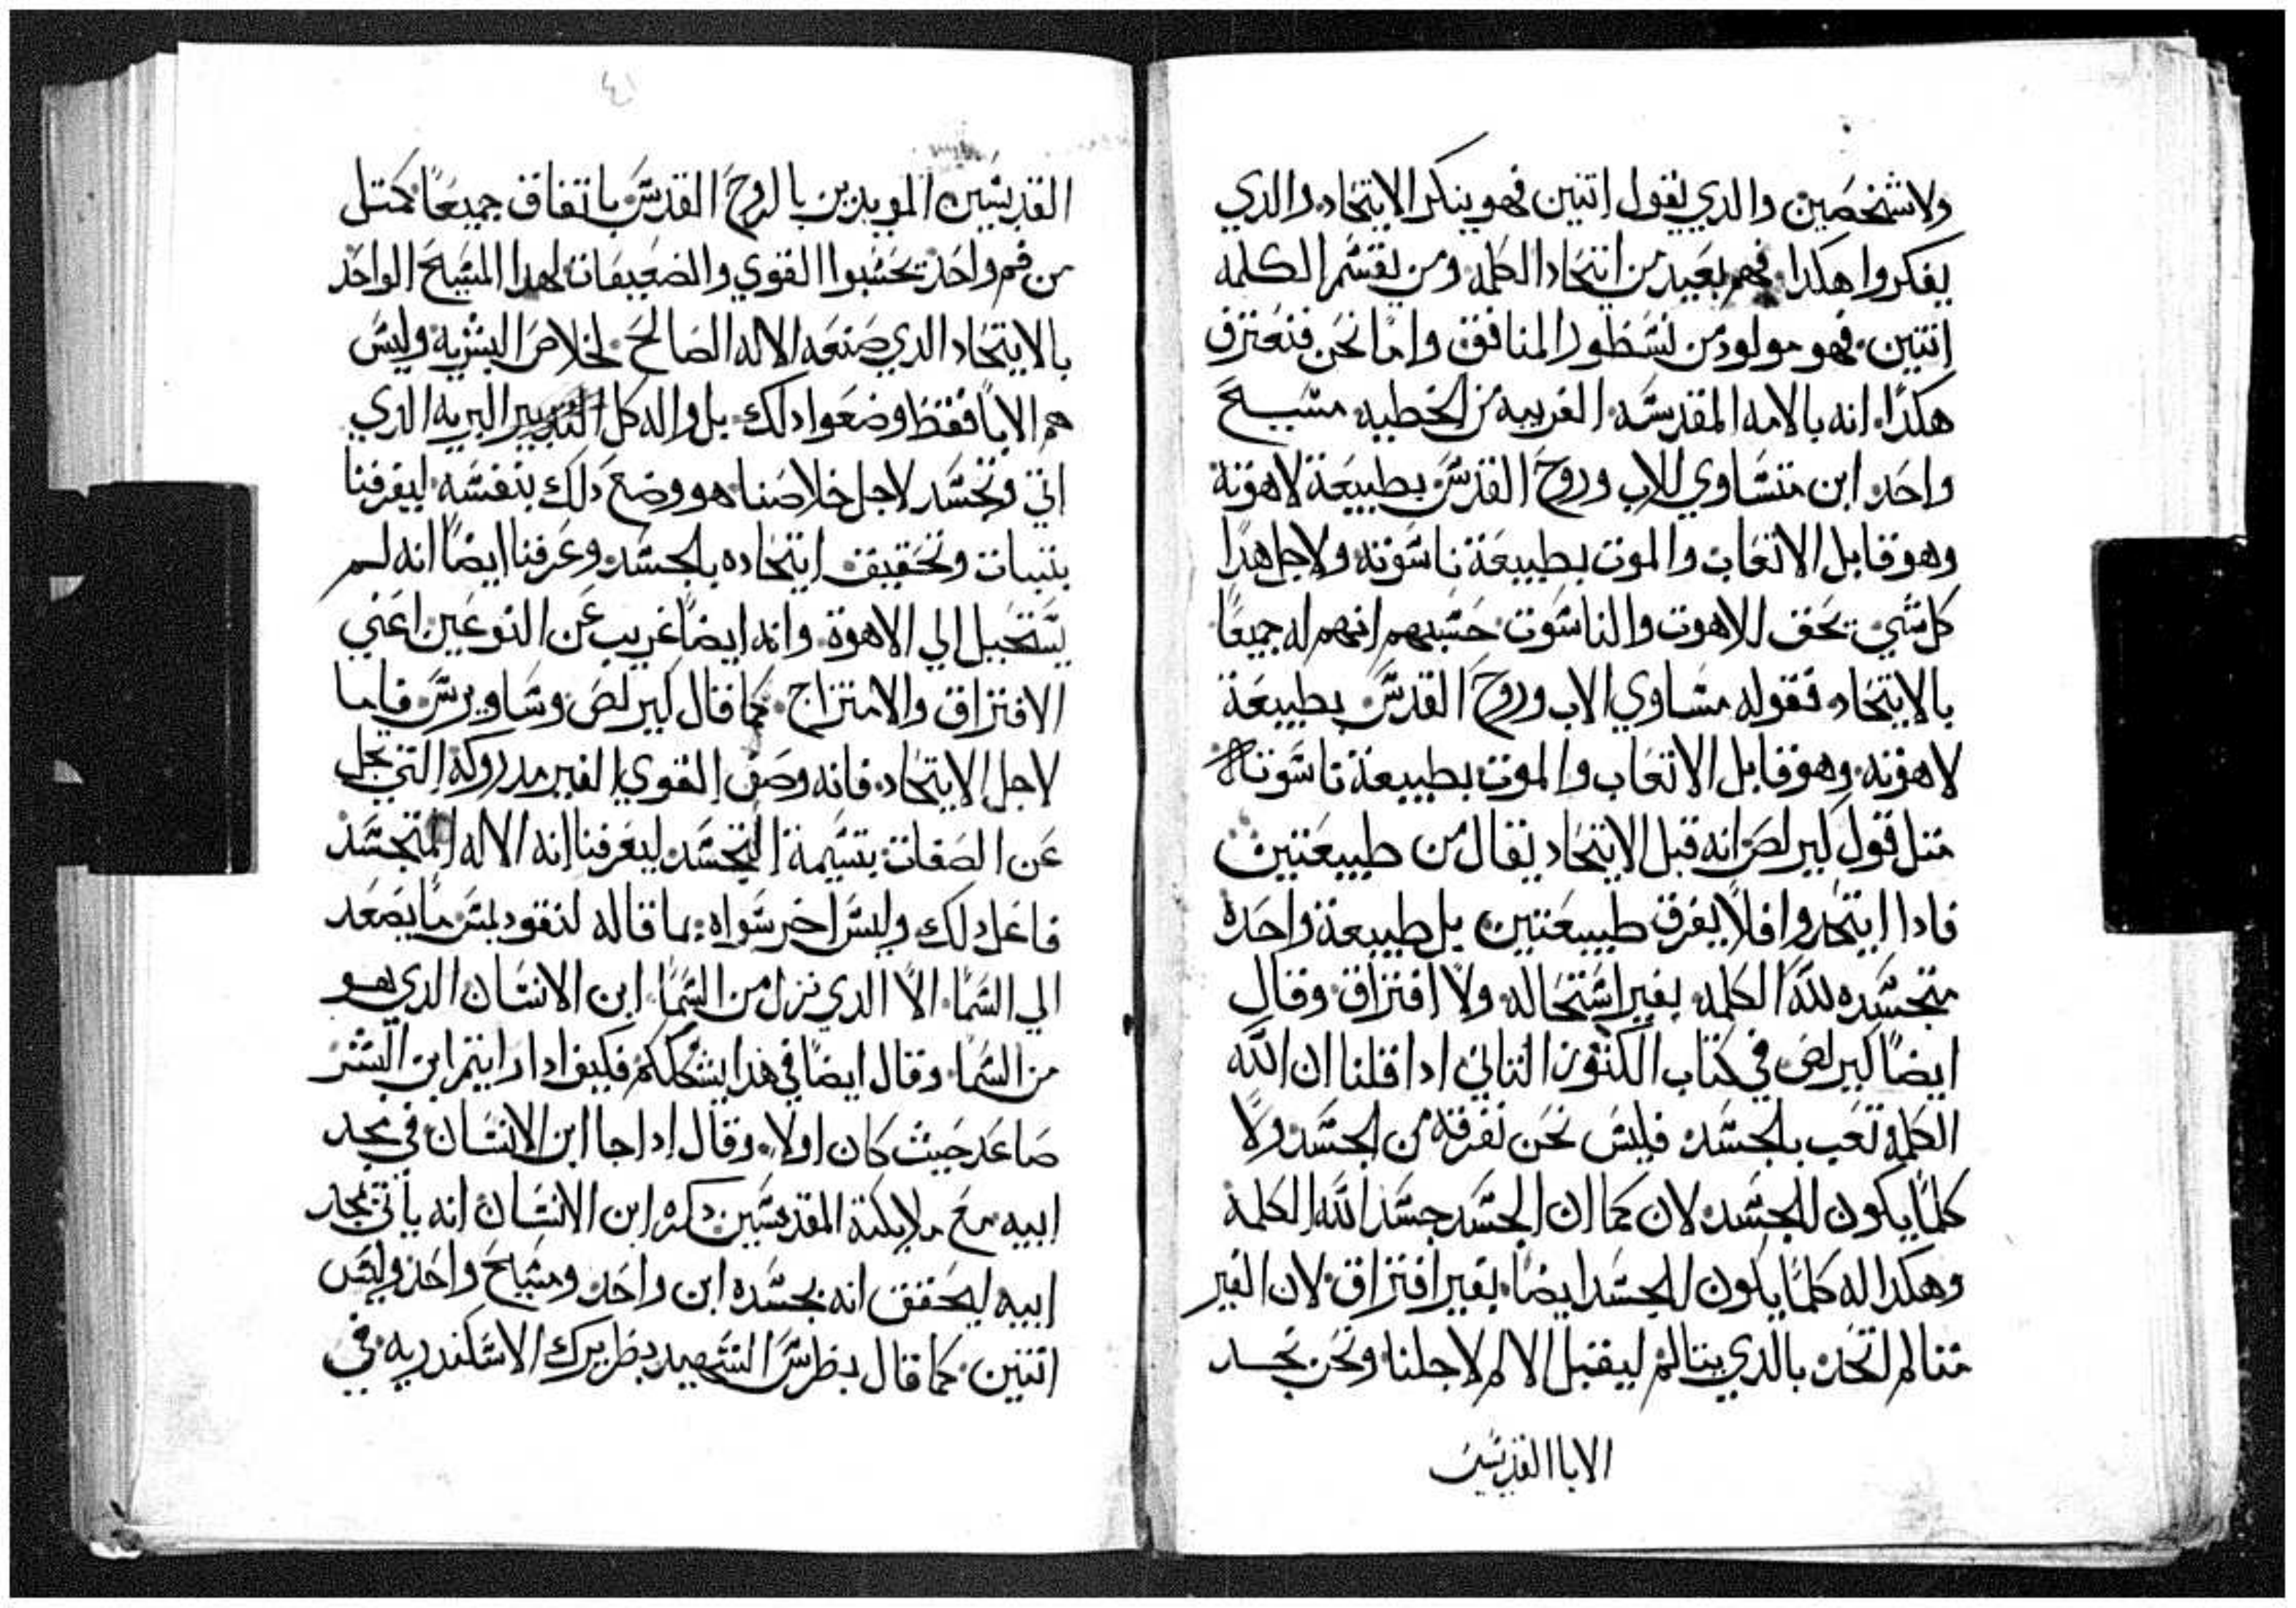 ولا شخصين والذي يقول اتنين فهو ينكر الايتحاد والدي
يفكروا هكدا فهم بعيد من ايتحاد الكلمه ومن يقسم الكلمه
اتنين فهو مولود من نسطور المنافق واما نحن فنعترف
هكدا انه بالامه المقدسه الغريبه من الخطيه مسيح
واحد ابن متساوي للاب وروح القدس بطبيعة لاهوته
وهو قابل الاتعاب والموت بطبيعة ناسوته ولاجل هدا
كل شي يحق للاهوت والناسوت حسبهم انهم له جميعا
بالايتحاد فقوله مساوي الاب وروح القدس بطبيعة
لاهوته وهو قابل الاتعاب والموت بطبيعة ناسوته
متل قول كيرلص انه قبل الايتحاد يقال من طبيعتين
فادا ايتحدوا فلا يفرق طبيعتين بل طبيعة واحده
متجسده لله الكلمه بغير استحاله ولا افتراق وقال
ايضا كيرلص في كتاب الكنوز التاني ادا قلنا ان الله
الكلمة تعب بالجسد فليس نحن نفرقه من الجسد ولا
كلما يكون للجسد لان كما ان الجسد جسد الله الكلمة
وهكدا له كلما يكون للجسد ايضا بغير افتراق لان الغير
متالم اتحد بالدي يتالم ليقبل الالم لاجلنا ونحن نجد
الابا القديسين
٤١
القديسين المويدين بالروح القدس باتفاق جميعا كمتل
من فم واحد يحسبوا القوي والضعيفات لهدا المسيح الواحد
بالايتحاد الدي صنعه الاله الصالح لخلاص البشريه وليس
هم الابا فقط وضعوا دلك بل واله كل البريه الدي
اتي وتجسد لاجل خلاصنا هو وضع دلك بنفسه ليعرفنا
بتبات وتحقيق ايتحاده بالجسد وعرفنا ايضا انه لم
يستحيل الي الاهوة وانه ايضا غريب عن النوعين اعني
الافتراق والامتزاج كما قال كيرلص وساويرس فاما
لاجل الايتحاد فانه وصف القوي الغير مدروكة التي تجل
عن الصفات بتسيمة التجسد ليعرفنا انه الاله المتجسد
فاعل دلك وليس اخر سواه بما قاله لنقوديمس ما يصعد
الي السما الا الدي نزل من السما ابن الانسان الدي هو
من السما وقال ايضا في هدا يشككم فكيف ادا رايتم ابن البشر
صاعد حيث كان اولا وقال ادا جا ابن الانسان في مجد
ابيه مع ملايكتة المقدسين دكره ابن الانسان انه ياتي بمجد
ابيه ليحقق انه بجسده ابن واحد ومسيح واحد وليس
اتنين كما قال بطرس الشهيد بطريرك الاسكندريه في